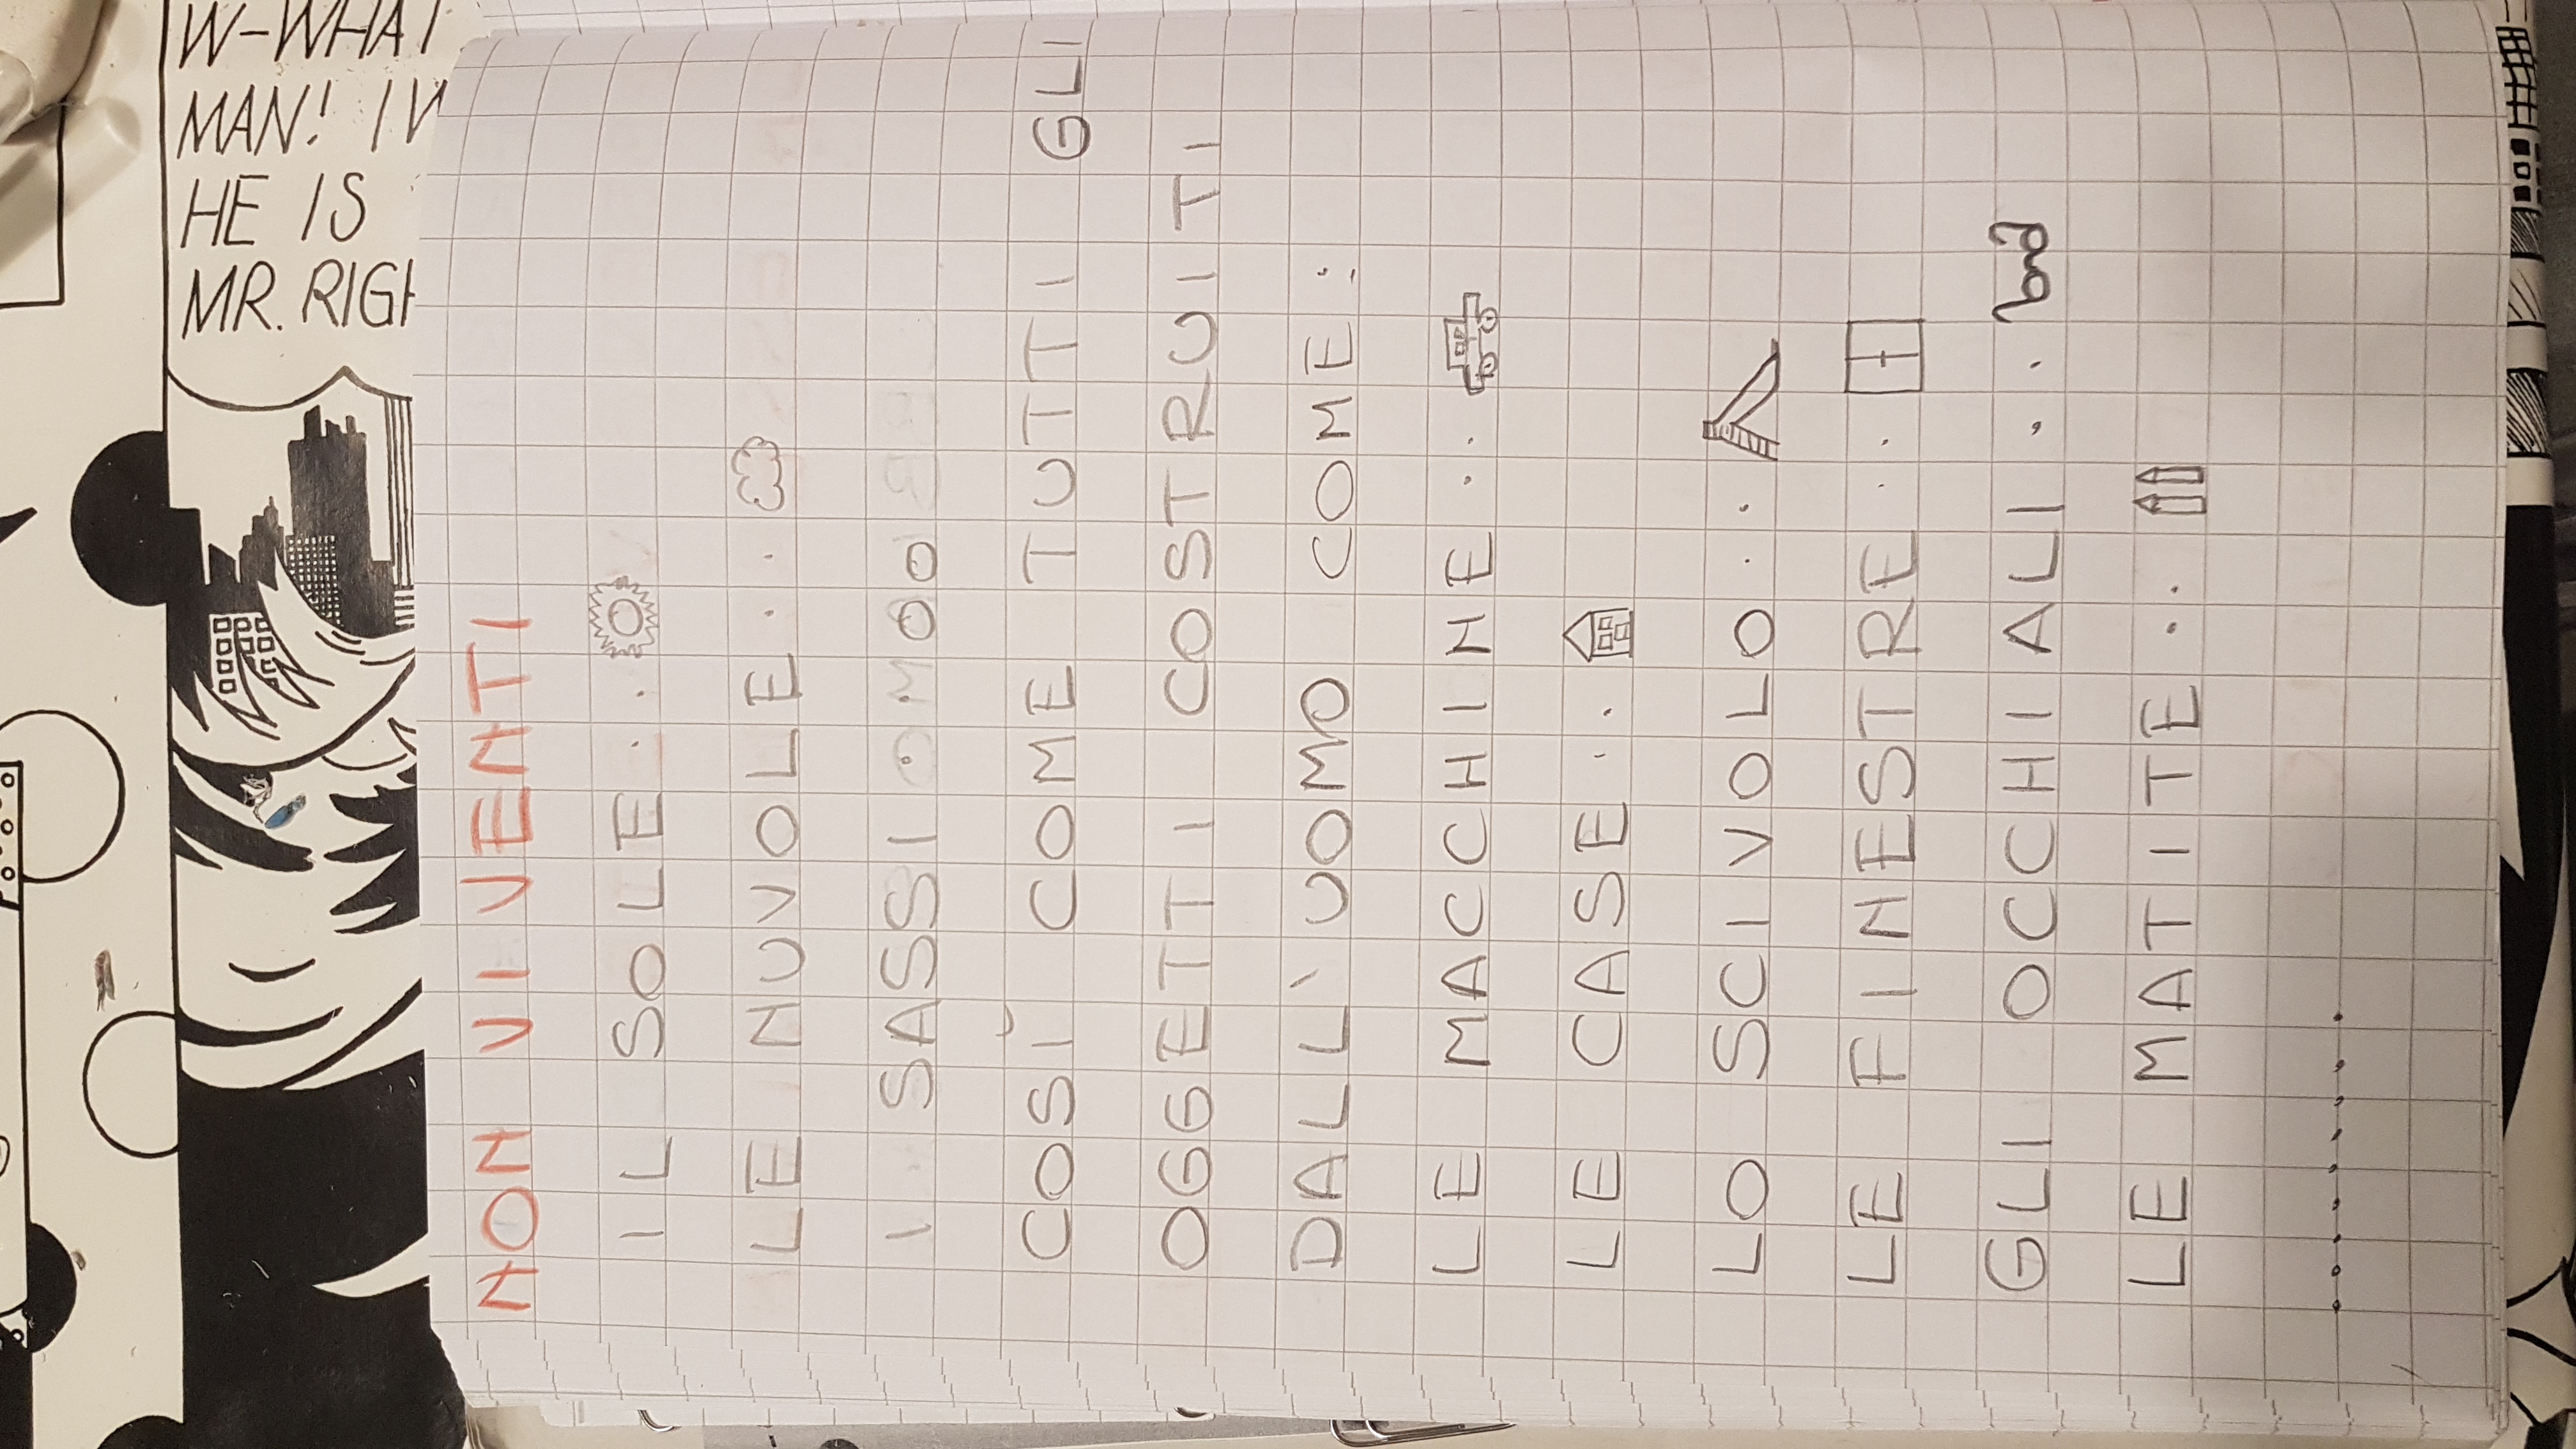 W-WHA
MAN! I'V
HE IS
MR. RIGH
NON VIVENTI
IL SOLE . .
LE NUVOLE . .
I SASSI . .
COSÌ COME TUTTI GLI
OGGETTI COSTRUITI
DALL'UOMO COME:
LE MACCHINE . .
LE CASE . .
LO SCIVOLO . .
LE FINESTRE . .
GLI OCCHIALI . .
LE MATITE . .
.........